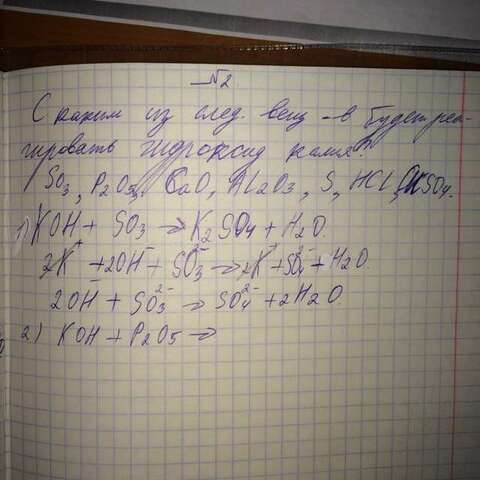 №2
С каким из след. вещ-в будет реа-
гировать гидроксид калия?
SO3, P2O5, CaO, Al2O3, S, HCl, CuSO4.
1) KOH + SO3 → K2SO4 + H2O.
2K⁺ + 2OH⁻ + SO3²⁻ → 2K⁺ + SO4²⁻ + H2O.
2OH⁻ + SO3²⁻ → SO4²⁻ + 2H2O
2) KOH + P2O5 →